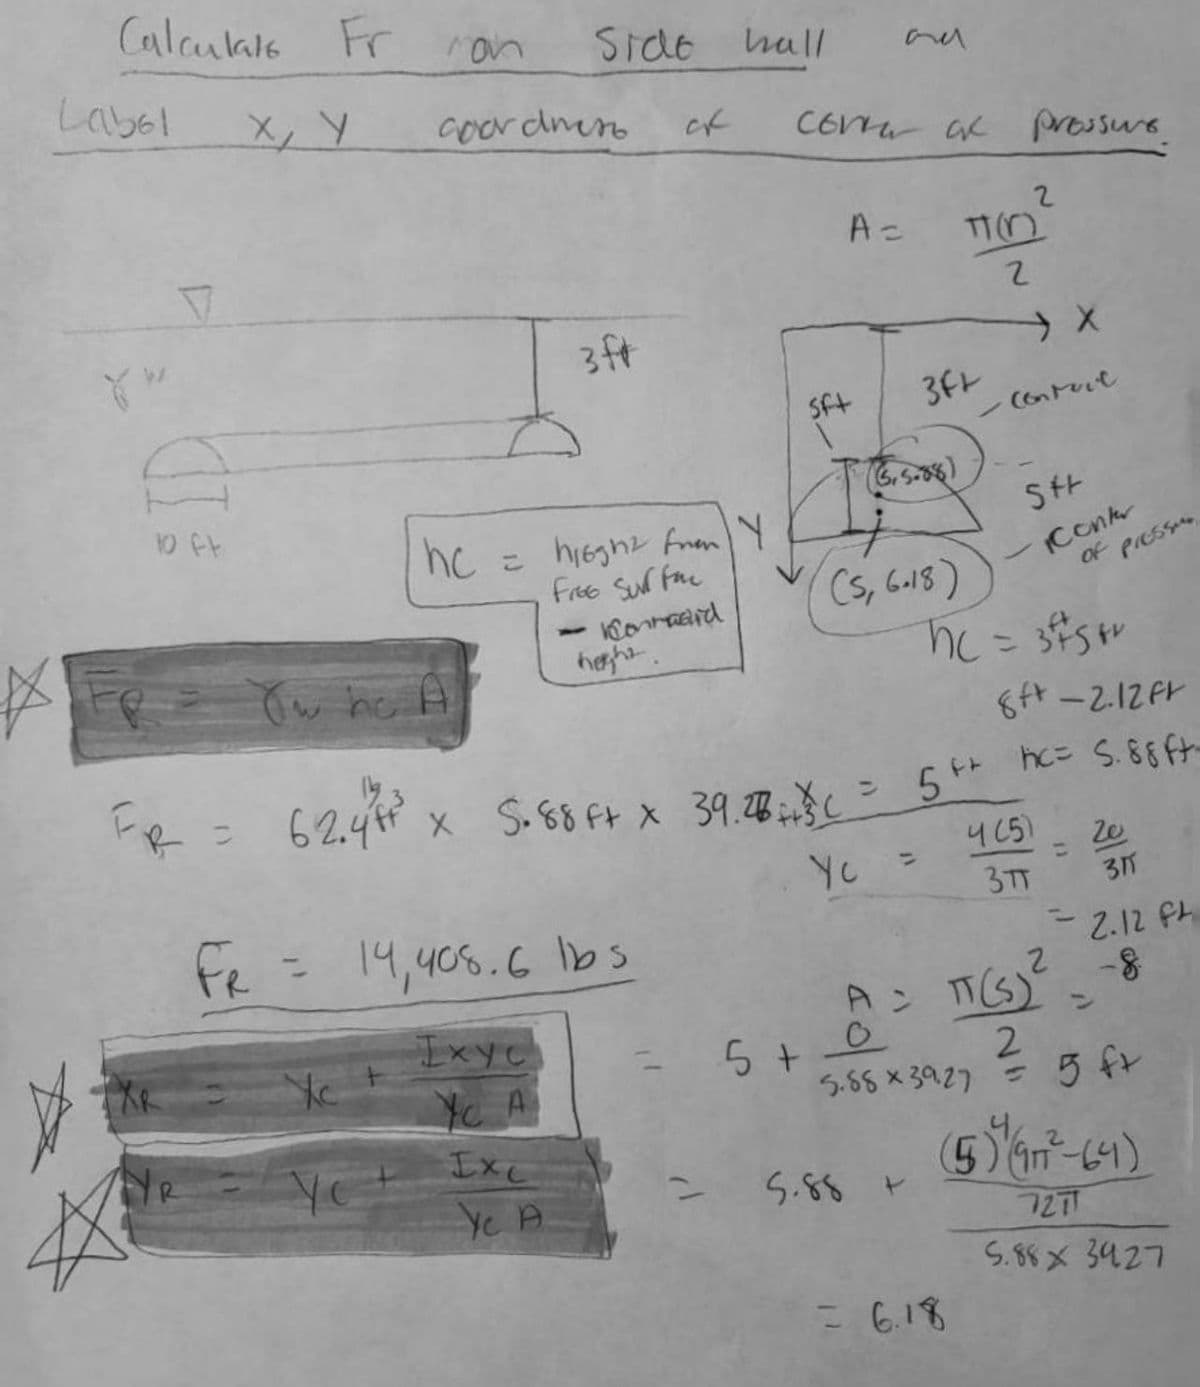 Calculate Fr on Side wall and
Label X, Y coordinates of center of pressure.
A = π(r)² / 2
X
3ft
γw
5ft
3ft
centroid
(5, 5.88)
5ft
10 ft
Y
center of pressure
(5, 6.18)
hc = height from
free surface
- centroid
height.
hc = 3ft+5ft
8ft - 2.12ft
hc = 5.88ft
FR = γw hc A
FR = 62.4 lb/ft³ x 5.88 ft x 39.27
Xc = 5ft
Yc = 4(5) / 3π = 20 / 3π
= 2.12 ft
-8
FR = 14,408.6 lbs
A = π(5)² / 2 =
XR = Xc + Ixyc / Yc A = 5 + 0 / 5.88 x 39.27 = 5 ft
YR = Yc + Ixc / Yc A = 5.88 + (5)⁴(9π²-64) / 72π / 5.88 x 39.27
= 6.18